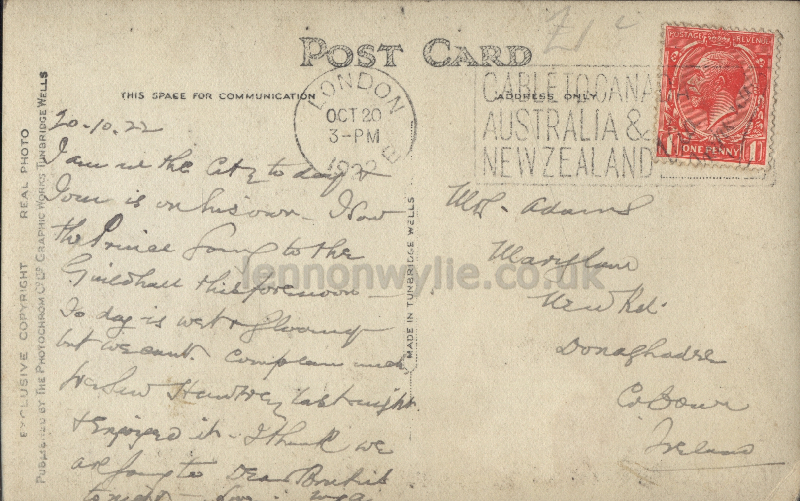 POST CARD
THIS SPACE FOR COMMUNICATION
ADDRESS ONLY
EXCLUSIVE COPYRIGHT REAL PHOTO
PUBLISHED BY THE PHOTOCHROM Co LTD GRAPHIC WORKS TUNBRIDGE WELLS
MADE IN TUNBRIDGE WELLS
LONDON
OCT 20
3-PM
1922
B
CABLE TO CANA
AUSTRALIA &
NEW ZEALAND
POSTAGE REVENUE
ONE PENNY
20-10.22
I am in the City to day &
Tom is on his own - I saw
the Prince going to the
Guildhall this forenoon -
To day is wet & gloomy
but we cant complain
last night
& enjoyed it - I think we
are going to Dear Brutus
tonight -
Adams
Marylawn
New Rd.
Donaghadee
Co Down
Ireland
lennonwylie.co.uk